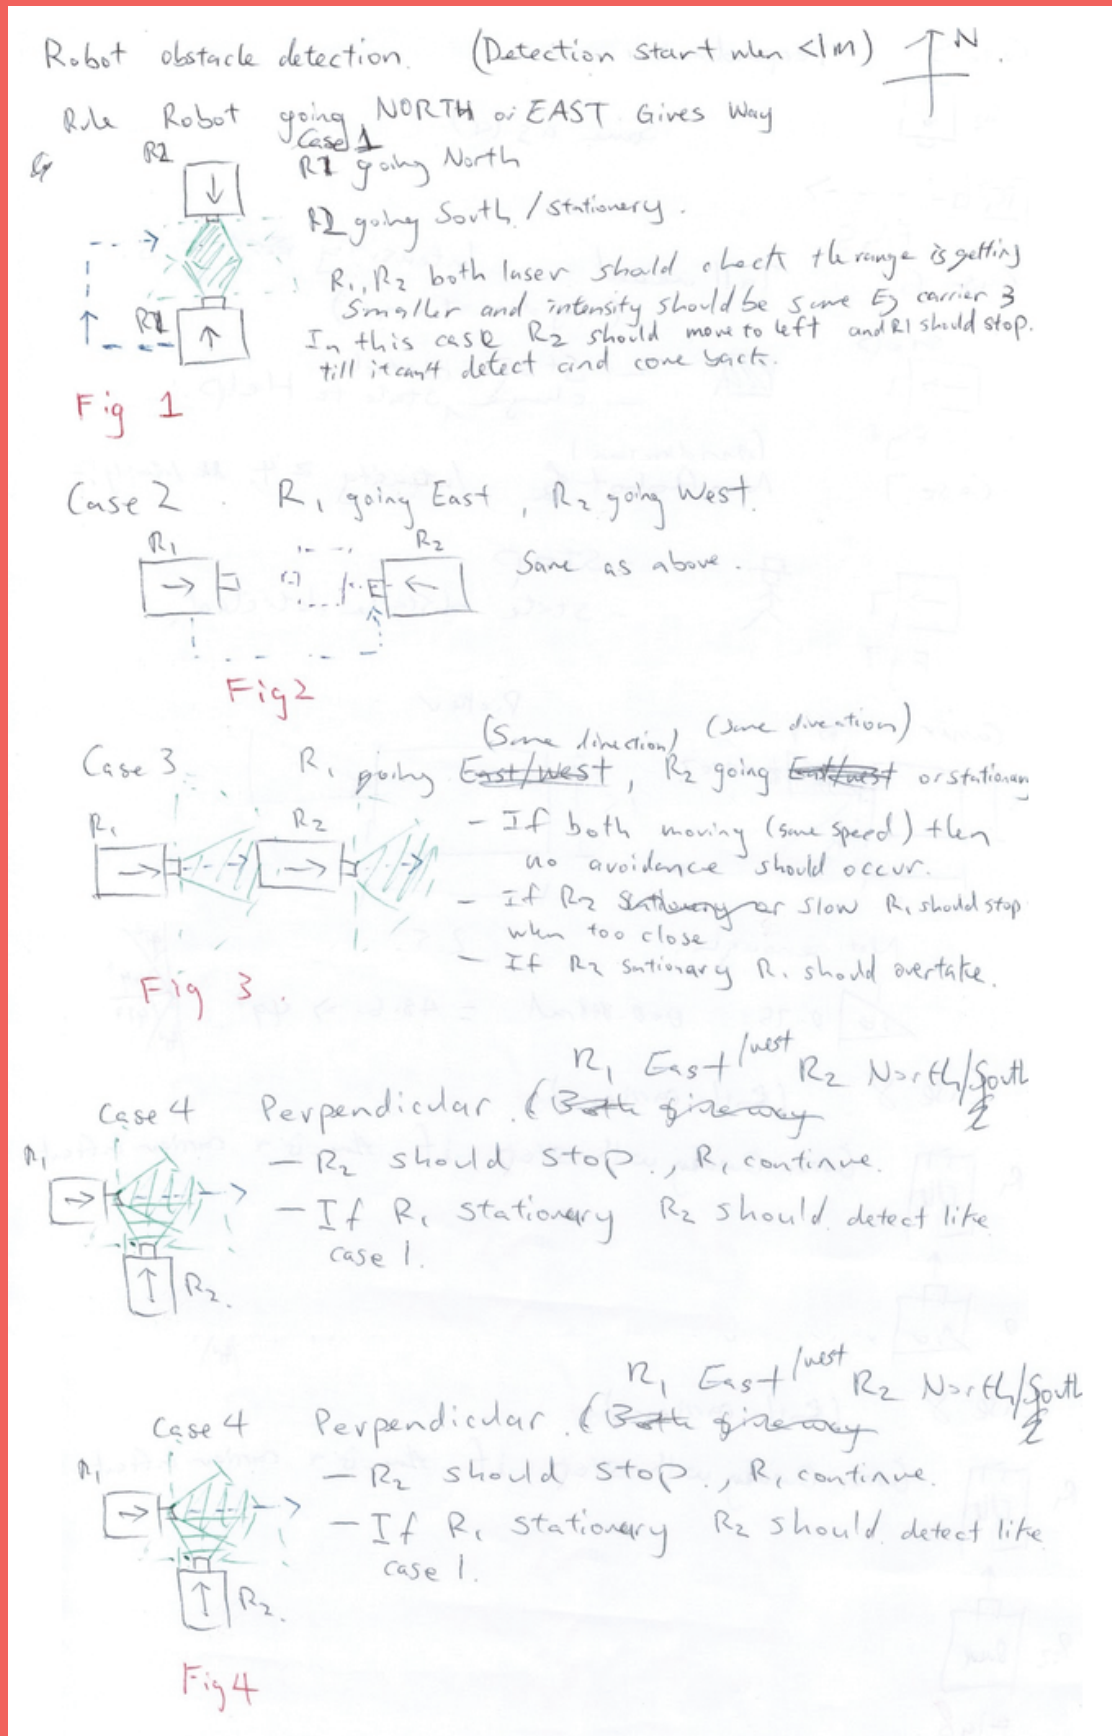 Robot obstacle detection. (Detection start when <1m) N
Rule Robot going NORTH or EAST Gives Way
Case 1
R2
R1 going North
R2 going South / stationery.
R1, R2 both laser should check the range is getting
smaller and intensity should be same Eg carrier 3
R1
In this case R2 should move to left and R1 should stop.
till it can't detect and come back.
Fig 1
Case 2 R1 going East, R2 going West.
R1 R2
Same as above.
Fig 2
(Same direction) (same direction)
Case 3 R1 going East/West, R2 going East/west or stationary
R1 R2
- If both moving (same speed) then
no avoidance should occur.
- If R2 or slow R1 should stop
when too close
- If R2 sationary R1 should overtake.
Fig 3.
R1 East/west R2 North/South
Case 4 Perpendicular. (Both giveaway
R1
- R2 should stop., R1 continue.
- If R1 stationary R2 should detect like
case 1.
R2.
R1 East/west R2 North/South
Case 4 Perpendicular. (Both giveaway
R1
- R2 should stop., R1 continue.
- If R1 stationary R2 should detect like
case 1.
R2.
Fig 4